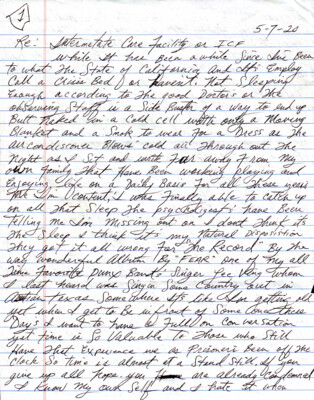 1
5-7-20
Re: Intermediate Care Facility or ICF
While it has been a while since I've been
to what the State of California and its employ
call a Crisis Bed I or haven't that sleeping
enough according to the good Doctors or the
observing Staff is a Side Butth of a way to end up
Butt Naked in a cold cell with only a Moving
Blanket and a Smok to wear for a Dress as the
air condissoner Blows cold air through out the
Night as I Sit and with far away from My
own family that Have Been working playing and
Enjoying life on a Daily Basis for all these years
Am I content, I was finally able to catch up
on all that Sleep the psycologists have been
telling me Im Missing out on I dont think its
the Sleep I think its my Natural Disposition
They got it all wrong. For the Record By the
way wonderful Album By "FEAR" one of my all
time Favorite Punx Band's Singer Lee Ving whom
I last heard was singin some Country out in
Texas Somewhere Its like Im getting old
yet when I get to Be in front of some one these
Days I want to have a full on Conversation
yet time is so Valuable to those who Still
Have that Experience we as Prisoners Been off the
clock so time is almost at a Stand Still if you
give up all Hope you are already Condemned
I know my own Self and I hate it when